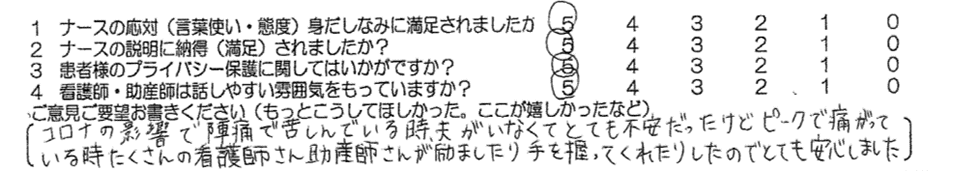 1 ナースの応対（言葉使い・態度）身だしなみに満足されましたか 5 4 3 2 1 0
2 ナースの説明に納得（満足）されましたか？ 5 4 3 2 1 0
3 患者様のプライバシー保護に関してはいかがですか？ 5 4 3 2 1 0
4 看護師・助産師は話しやすい雰囲気をもっていますか？ 5 4 3 2 1 0
ご意見ご要望お書きください（もっとこうしてほしかった。ここが嬉しかったなど）
コロナの影響で陣痛で苦しんでいる時、夫がいなくてとても不安だったけどピークで痛がって
いる時たくさんの看護師さん助産師さんが励ましたり手を握ってくれたりしたのでとても安心しました